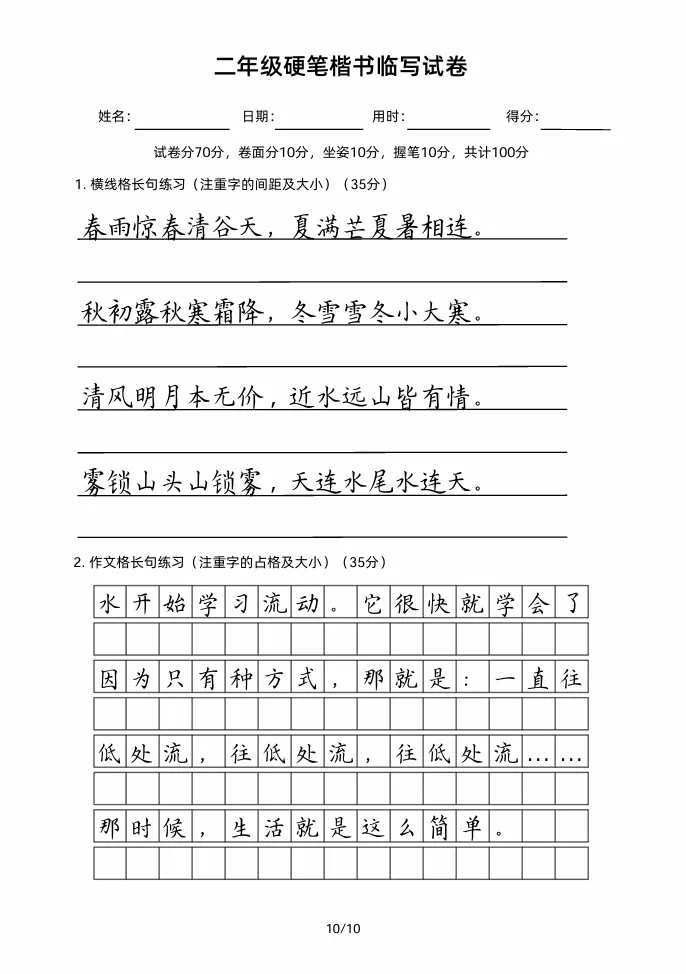 二年级硬笔楷书临写试卷
姓名： 日期： 用时： 得分：
试卷分70分，卷面分10分，坐姿10分，握笔10分，共计100分
1. 横线格长句练习（注重字的间距及大小）（35分）
春雨惊春清谷天，夏满芒夏暑相连。
秋初露秋寒霜降，冬雪雪冬小大寒。
清风明月本无价，近水远山皆有情。
雾锁山头山锁雾，天连水尾水连天。
2. 作文格长句练习（注重字的占格及大小）（35分）
水开始学习流动。它很快就学会了
因为只有种方式，那就是：一直往
低处流，往低处流，往低处流……
那时候，生活就是这么简单。
10/10